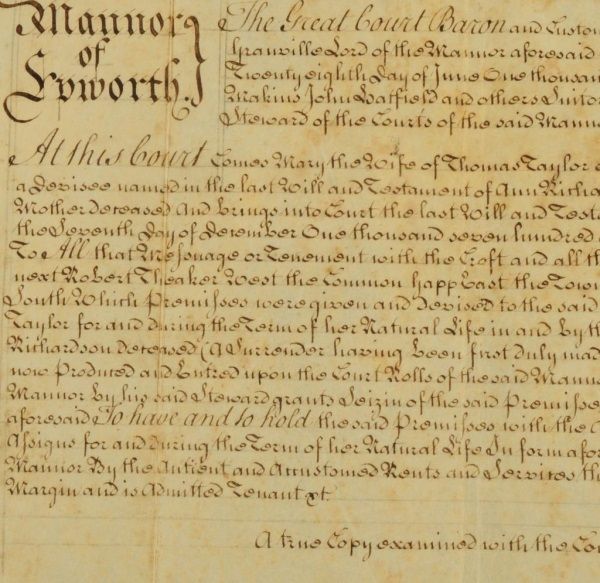 Mannor
of
Epworth.
The Great Court Baron and Custom
Granville Lord of the Mannor aforesaid
Twenty eighth Day of June One thousan
Makins John Hatfield and others Suitor
Steward of the Courts of the said Manno
At this Court Comes Mary the Wife of Thomas Taylor
a Devisee named in the last Will and Testament of Ann Richa
Mother deceased And brings into Court the last Will and Testa
the Seventh Day of December One thousand seven hundred
To All that Messuage or Tenement with the Croft and all th
next Robert Theaker West the Common Happ East the Town
South Which Premisses were given and devised to the said
Taylor for and during the Term of her Natural Life in and by th
Richardson deceased (A Surrender having been first duly mad
now Produced and Entred upon the Court Rolls of the said Manno
Mannor by his said Steward grants Seizin of the said Premisse
aforesaid To have and to hold the said Premisses with the
Assigns for and During the Term of her Natural Life In form afor
Mannor By the Antient and Accustomed Rents and Services th
Margin and is Admitted Tenant &c
A true Copy examined with the Cou